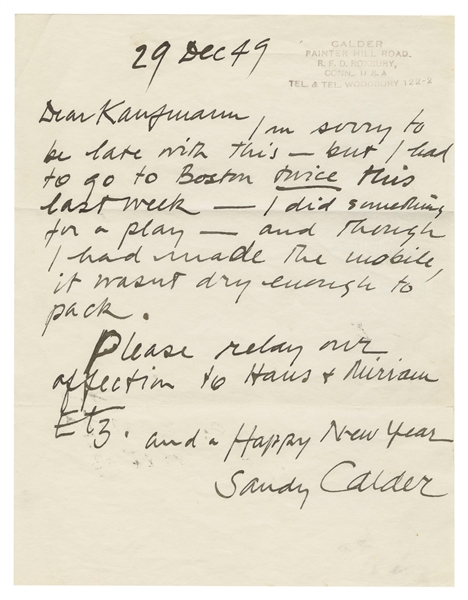 29 Dec 49
CALDER
PAINTER HILL ROAD.
R. F. D. ROXBURY,
CONN., U S A
TEL. & TEL. WOODBURY 122-2
Dear Kaufmann
I'm sorry to
be late with this — but I had
to go to Boston twice this
last week — I did something
for a play — and though
I had made the mobile,
it wasnt dry enough to
pack.
Please relay our
affection to Hans & Miriam
Etz. and a Happy New Year
Sandy Calder